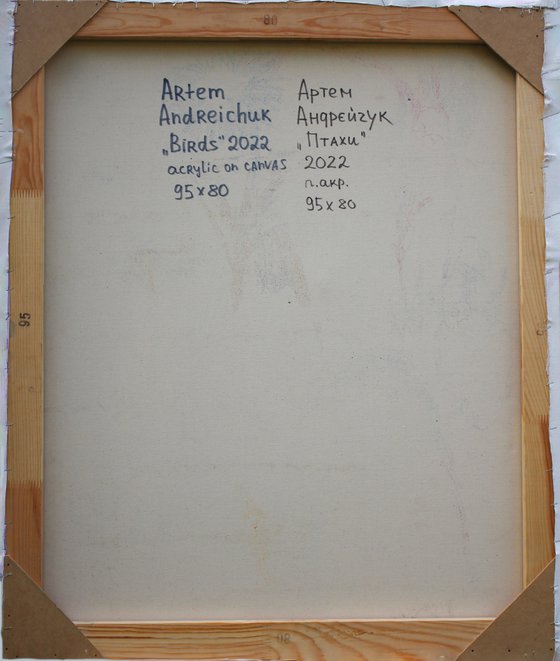 80
Artem
Andreichuk
„Birds" 2022
acrylic on canvas
95 x 80
Артем
Андрейчук
„Птахи"
2022
п.акр.
95 x 80
95
80